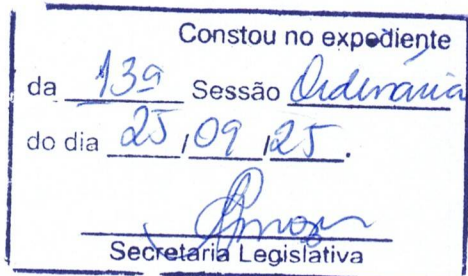 Constou no expediente
da 13ª Sessão Ordinária
do dia 25,09,25.
Secretaria Legislativa